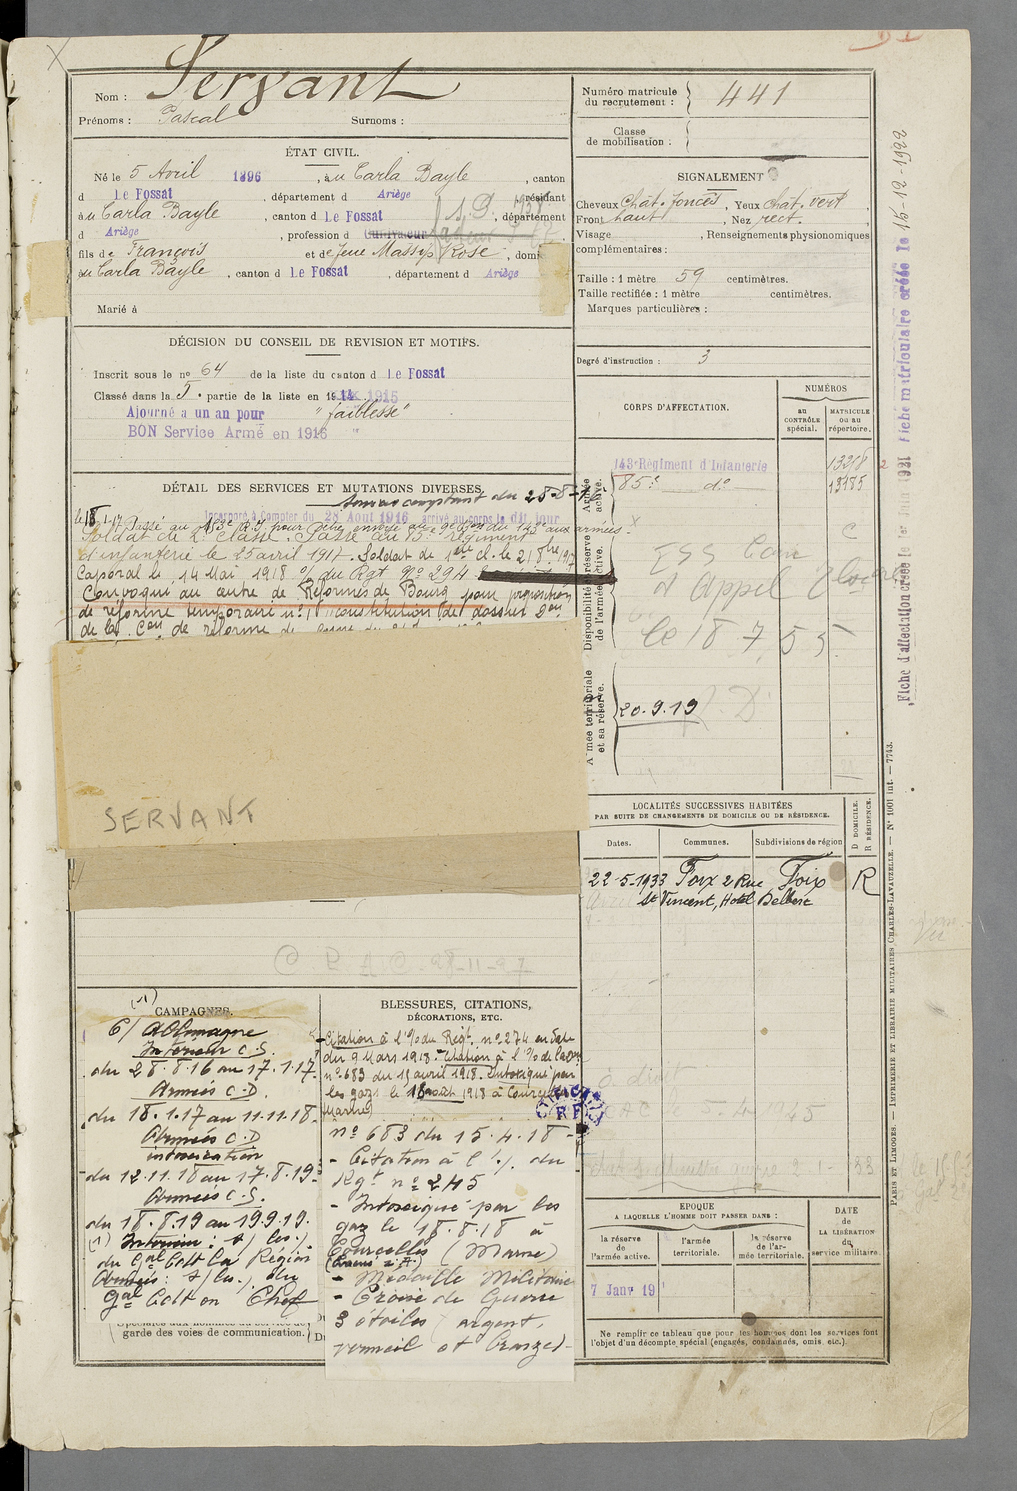 Nom : Servant
Prénoms : Pascal Surnoms :
ÉTAT CIVIL.
Né le 5 Avril 1896, à u Carla Bayle, canton
d Le Fossat, département d Ariège, résidant
à u Carla Bayle, canton d Le Fossat, département
d Ariège, profession d Cultivateur
fils de François et de feue Massip Rose, domi
à u Carla Bayle, canton d Le Fossat, département d Ariège
Marié à
DÉCISION DU CONSEIL DE REVISION ET MOTIFS.
Inscrit sous le no 64 de la liste du canton d Le Fossat
Classé dans la 5e partie de la liste en 1915
Ajourné a un an pour "faiblesse"
BON Service Armé en 1916 "
DÉTAIL DES SERVICES ET MUTATIONS DIVERSES.
comptant du 28-8-16
Incorporé à Compter du 28 Aout 1916 arrivé au corps le dit jour
Soldat de 2e classe. Passé au 85e régiment
d'infanterie le 25 avril 1917. Soldat de 1ère cl. le 21 8bre 1917
Caporal le 14 Mai 1918 o/ du Rgt No 294
Convoqué au centre de Réformes de Bourg pour proposition
de réforme temporaire no 1 constitution de dossier
de la Con de réforme de
SERVANT
C.P.A.C. 28-11-27
CAMPAGNES.
(1)
C/ Allemagne
Intérieur C.S.
du 28.8.16 au 17.1.17
Armées C.D.
du 18.1.17 au 11.11.18
Armées C.D
intoxication
du 12.11.18 au 17.8.19
Armées C.S.
du 18.8.19 au 19.9.19.
(1) Intérieur : s/ les
du Gal Cdt la Région
Armées : s/ les du
Gal Cdt en Chef
garde des voies de communication.
BLESSURES, CITATIONS,
DÉCORATIONS, ETC.
Citation à l'o/ du Régt. no 274 en date
du 9 Mars 1918. Citation à l'o/ de la Don
no 683 du 15 avril 1918. Intoxiqué par
les gaz le 18 août 1918 à Courcelles
Marne)
no 683 du 15.4.18 -
- Citation à l'o/. du
Rgt no 245
- Intoxiqué par les
gaz le 18.8.18 à
Courcelles (Marne)
- Médaille Militaire
- Croix de Guerre
3 étoiles (argent,
vermeil et bronze) -
Numéro matricule
du recrutement : 441
Classe
de mobilisation :
SIGNALEMENT
Cheveux Chât. foncés, Yeux chat. vert
Front haut, Nez rect.
Visage , Renseignements physionomiques
complémentaires :
Taille : 1 mètre 59 centimètres.
Taille rectifiée : 1 mètre centimètres.
Marques particulières :
Degré d'instruction : 3
CORPS D'AFFECTATION.
NUMÉROS
au
CONTRÔLE
spécial.
MATRICULE
OU au
répertoire.
Armée
active.
143e Régiment d'Infanterie 13218
85e do 13185
Disponibilité et réserve
de l'armée active.
d'Appel
le 18 7 55
Armée territoriale
et sa réserve.
20.9.19
LOCALITÉS SUCCESSIVES HABITÉES
PAR SUITE DE CHANGEMENTS DE DOMICILE OU DE RÉSIDENCE.
Dates. Communes. Subdivisions de région
D DOMICILE.
R RÉSIDENCE.
22-5-1933 Foix 2 Rue Foix R
St Vincent, Hotel Delbere
5-4-1945
EPOQUE
A LAQUELLE L'HOMME DOIT PASSER DANS :
la réserve
de
l'armée active.
l'armée
territoriale.
la réserve
de l'ar-
mée territoriale.
DATE
de
LA LIBÉRATION
du
service militaire.
7 Janv 19
Ne remplir ce tableau que pour les hommes dont les services font
l'objet d'un décompte spécial (engagés, condamnés, omis, etc.).
Fiche matriculaire créée le 15-12-1922
Fiche d'affectation créée le 1er Juin 1921
PARIS ET LIMOGES. — IMPRIMERIE ET LIBRAIRIE MILITAIRES CHARLES-LAVAUZELLE. — No 1001 int. — 7743.